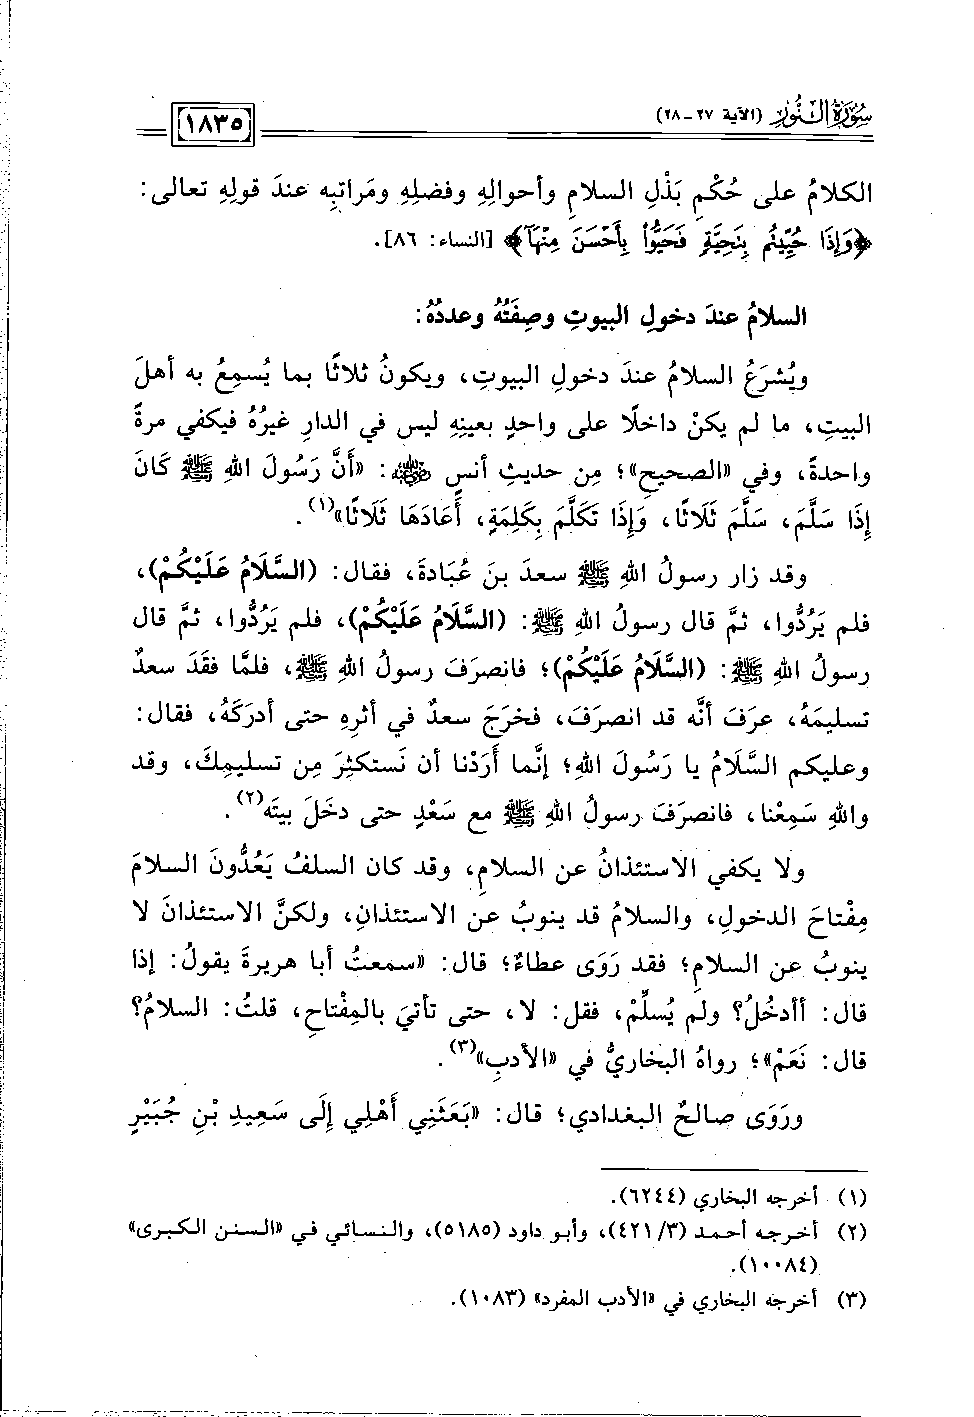 سُورَةُ النُّورِ (الآية ٢٧ - ٢٨)
١٨٣٥
الكلامُ على حُكْمِ بَذْلِ السلامِ وأحوالِهِ وفضلِهِ ومَراتبِه عندَ قولِهِ تعالى:
﴿وَإِذَا حُيِّيتُم بِتَحِيَّةٍ فَحَيُّوا۟ بِأَحْسَنَ مِنْهَآ﴾ [النساء: ٨٦].
السلامُ عندَ دخولِ البيوتِ وصِفَتُهُ وعددُهُ:
ويُشرَعُ السلامُ عندَ دخولِ البيوتِ، ويكونُ ثلاثًا بما يُسمِعُ به أهلَ
البيتِ، ما لم يكنْ داخلًا على واحدٍ بعينِهِ ليس في الدارِ غيرُهُ فيكفي مرةً
واحدةً، وفي «الصحيحِ»؛ مِن حديثِ أنسٍ ﵁: «أَنَّ رَسُولَ اللهِ ﷺ كَانَ
إِذَا سَلَّمَ، سَلَّمَ ثَلَاثًا، وَإِذَا تَكَلَّمَ بِكَلِمَةٍ، أَعَادَهَا ثَلَاثًا»(١).
وقد زار رسولُ اللهِ ﷺ سعدَ بنَ عُبَادةَ، فقال: (السَّلَامُ عَلَيْكُمْ)،
فلم يَرُدُّوا، ثمَّ قال رسولُ اللهِ ﷺ: (السَّلَامُ عَلَيْكُمْ)، فلم يَرُدُّوا، ثمَّ قال
رسولُ اللهِ ﷺ: (السَّلَامُ عَلَيْكُمْ)؛ فانصرَفَ رسولُ اللهِ ﷺ، فلمَّا فقَدَ سعدٌ
تسليمَهُ، عرَفَ أنَّه قد انصرَفَ، فخرَجَ سعدٌ في أثرِهِ حتى أدرَكَهُ، فقال:
وعليكم السَّلَامُ يا رَسُولَ اللهِ؛ إنَّما أَرَدْنا أن نَستكثِرَ مِن تسليمِكَ، وقد
واللهِ سَمِعْنا، فانصرَفَ رسولُ اللهِ ﷺ مع سَعْدٍ حتى دخَلَ بيتَه(٢).
ولا يكفي الاستئذانُ عن السلامِ، وقد كان السلفُ يَعُدُّونَ السلامَ
مِفْتاحَ الدخولِ، والسلامُ قد ينوبُ عن الاستئذانِ، ولكنَّ الاستئذانَ لا
ينوبُ عن السلامِ؛ فقد رَوَى عطاءٌ؛ قال: «سمعتُ أبا هريرةَ يقولُ: إذا
قال: أأدخُلُ؟ ولم يُسلِّمْ، فقل: لا، حتى تأتيَ بالمِفْتاحِ، قلتُ: السلامُ؟
قال: نَعَمْ»؛ رواهُ البخاريُّ في «الأدبِ»(٣).
ورَوَى صالحٌ البغدادي؛ قال: «بَعَثَنِي أَهْلِي إِلَى سَعِيدِ بْنِ جُبَيْرٍ
(١) أخرجه البخاري (٦٢٤٤).
(٢) أخرجه أحمد (٣/ ٤٢١)، وأبو داود (٥١٨٥)، والنسائي في «السنن الكبرى»
(١٠٠٨٤).
(٣) أخرجه البخاري في «الأدب المفرد» (١٠٨٣).